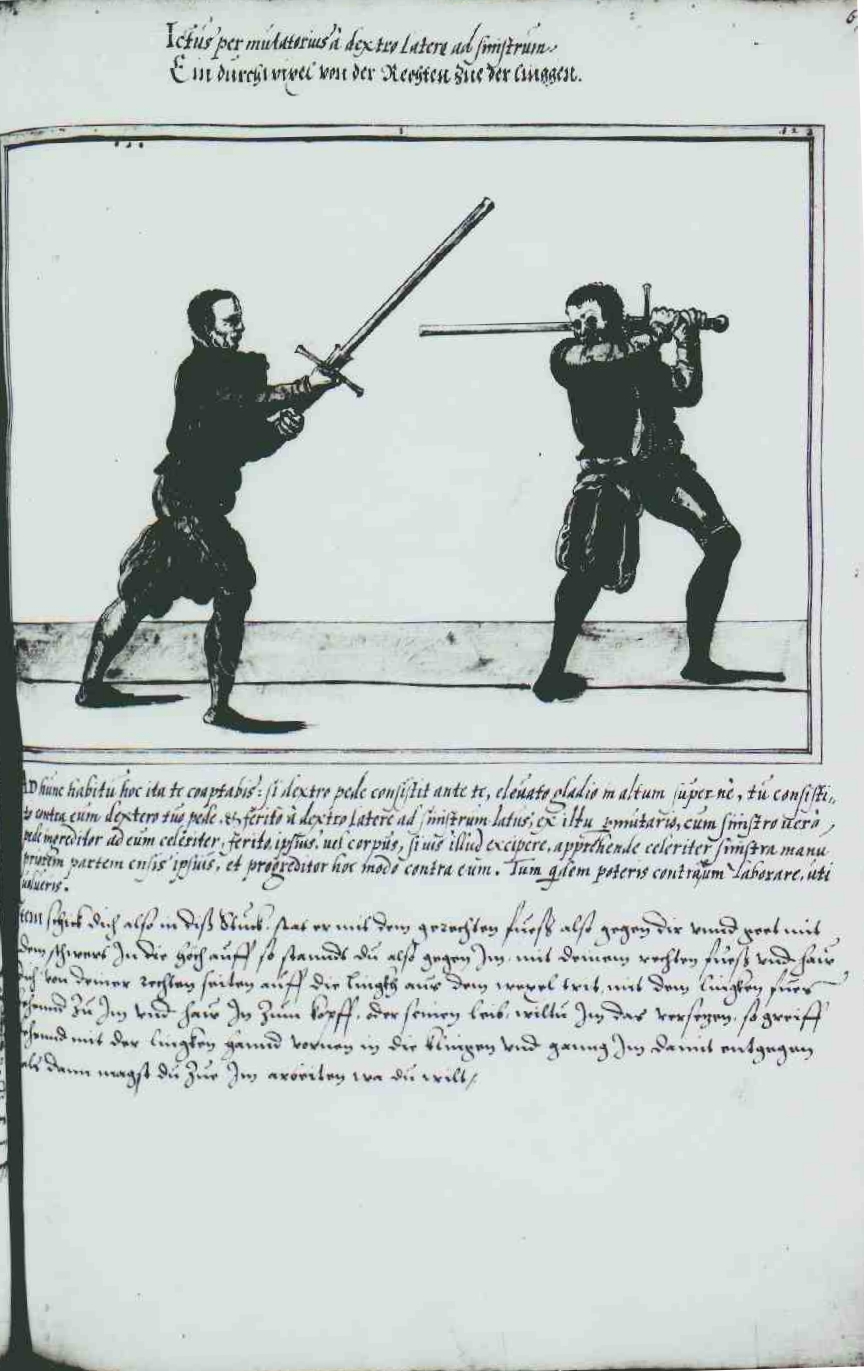 6
Ictus per mutatorius à dextro latere ad sinistrum
Ein durchwexel von der Rechten zue der linggen.
AD hunc habitū hoc ita te coaptabis: si dextro pede consistit ante te, eleuato gladio in altum supernè, tu consisti,,
to contra eum dextero tuo pede, et ferito à dextro latere ad sinistrum latus, ex ictu permutario, cum sinistro uerò
pede ingreditor ad eum celeriter, ferito ipsius, uel corpus, si uis illud excipere, apprehende celeriter sinistra manu
priorem partem ensis ipsius, et progreditor hoc modo contra eum. Tum qdem poteris contra eum laborare, uti
uolueris.
Item schick dich also in diß Stuck. stat er mit dem gerechten fuess also gegen dir vnnd geet mit
dem schwert In die höch auff so stannd du also gegen Im mit deinem rechten fuess vnd haw
von deiner rechten seiten auff die lingkh aus dem wexel trit mit dem lingken fues
zu Im vnd haw In zum kopff, oder seinen leib, wiltu Im das versetzen, so greiff
mit der lingken hannd vornen in die klingen vnd ganng Im damit entgegen
als dann magst du zue Im arbeiten wa du wilt/